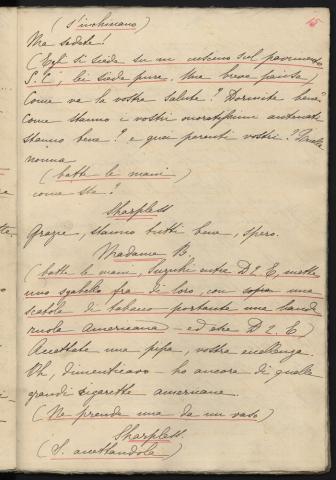 15
(s'inchinano)
Ma sedete!
(Egli si siede su un cuscino sul pavimento
S. E, lei siede pure. Una breve pausa)
Come va la vostra salute? Dormite bene?
Come stanno i vostri onoratissimi antenati
stanno bene? e quei parenti vostri? Vostra
nonna
(batte le mani)
come sta?
Sharpless
Grazie, stanno tutti bene, spero.
Madame B.
(batte le mani, Suzuki entra D 2 E, mette
uno sgabello fra di loro, con sopra una
scatola di tabacco portante una band
ruola Americana — ed esce D 2 E)
Accettate una pipa, vostra eccellenza.
Oh, dimenticavo — ho ancora di quelle
grandi sigarette americane.
(Ne prende una da un vaso)
Sharpless.
(S. accettandola)